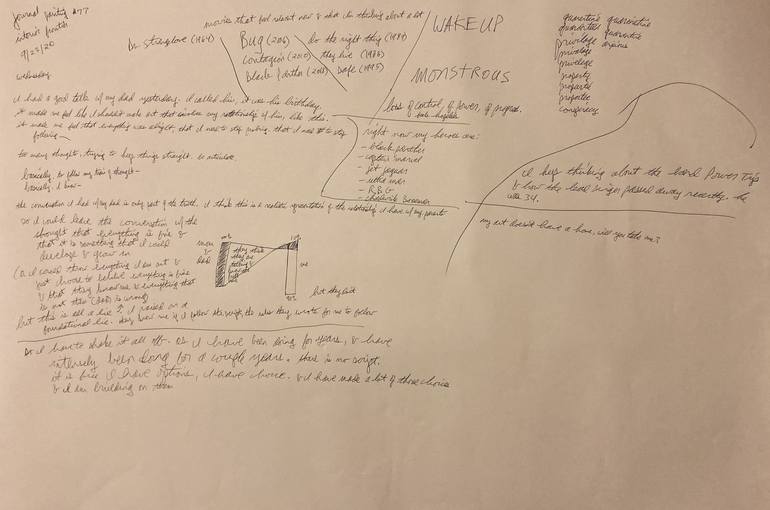 journal painting #77
interior practice
9/23/20
wednesday
movies that feel relevant now & that i'm thinking about a lot
Dr. Strangelove (1964)
Bug (2006)
Contagion (2011)
black panther (2018)
do the right thing (1989)
they live (1988)
Safe (1995)
WAKE UP
MONSTROUS
quarantine quarantine
quarantine
privilege
privilege
privilege
property
properties
properties
conspiracy
i had a good talk w/ my dad yesterday. i called him, it was his birthday.
it made me feel like i shouldn't make art that involves my relationship w/ him, like this.
it made me feel that everything was alright, that i need to stop pushing. that i need to stop
following —
too many thoughts, trying to keep things straight. so articulate.
basically, to follow my train of thought —
basically, i know —
the conversation i had w/ my dad is only part of the truth. i think this is a realistic representation of the relationship i have w/ my parents
loss of control, of power, of purpose.
right now my heroes are:
- black panther
- captain marvel
- jet jaguar
- ultraman
- R.B.G
- chadwick boseman
i keep thinking about the band Power Trip
& how the lead singer passed away recently. he
was 34.
my art doesn't have a home, will you take me?
so i could leave the conversation w/ the
thought that everything is fine &
that it is something that i could
develop & grow in
(or i could throw everything i am out &
just choose to believe everything is fine
& that they know me & everything that
is not this (DAD) is wrong)
mom
&
DAD
they think
they are
me
90%
10%
but they aint
but this is all a lie. i, raised on a
foundational lie. they know me if i follow the script, the rules they wrote for me to follow
so i have to shake it all off. as i have been doing for years, & have
intensely been doing for a couple years. there is no script.
it is fine i have options, i have choice. & i have made a lot of those choices
& i am building on them